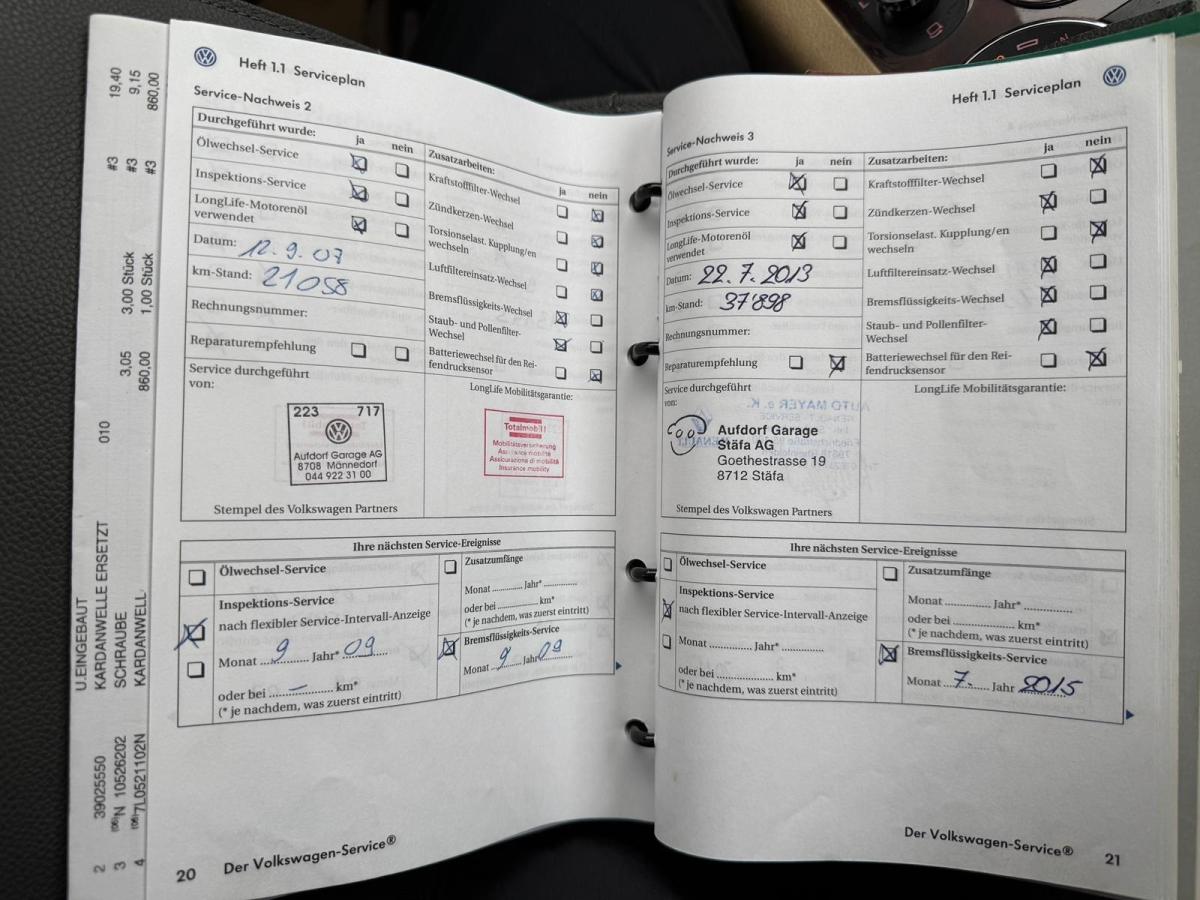 19,40
9,15
860,00
#3
#3
#3
3,00 Stück
1,00 Stück
3,05
860,00
010
U.EINGEBAUT
KARDANWELLE ERSETZT
SCHRAUBE
KARDANWELL
2 39025550
3 (06)N 10526202
4 (06)7L0521102N
Heft 1.1 Serviceplan
Service-Nachweis 2
Durchgeführt wurde: ja nein
Ölwechsel-Service
Inspektions-Service
LongLife-Motorenöl
verwendet
Datum: 12.9.07
km-Stand: 21058
Rechnungsnummer:
Reparaturempfehlung
Service durchgeführt
von:
223 717
Aufdorf Garage AG
8708 Männedorf
044 922 31 00
Stempel des Volkswagen Partners
Zusatzarbeiten: ja nein
Kraftstofffilter-Wechsel
Zündkerzen-Wechsel
Torsionselast. Kupplung/en
wechseln
Luftfiltereinsatz-Wechsel
Bremsflüssigkeits-Wechsel
Staub- und Pollenfilter-
Wechsel
Batteriewechsel für den Rei-
fendrucksensor
LongLife Mobilitätsgarantie:
Totalmobil!
Mobilitätsversicherung
Assurance mobilité
Assicurazione di mobilità
Insurance mobility
Ihre nächsten Service-Ereignisse
Ölwechsel-Service
Inspektions-Service
nach flexibler Service-Intervall-Anzeige
Monat 9 Jahr* 09
oder bei – km*
(* je nachdem, was zuerst eintritt)
Zusatzumfänge
Monat Jahr*
oder bei km*
(* je nachdem, was zuerst eintritt)
Bremsflüssigkeits-Service
Monat 9 Jahr 09
20 Der Volkswagen-Service®
Heft 1.1 Serviceplan
Service-Nachweis 3
Durchgeführt wurde: ja nein
Ölwechsel-Service
Inspektions-Service
LongLife-Motorenöl
verwendet
Datum: 22.7.2013
km-Stand: 37'898
Rechnungsnummer:
Reparaturempfehlung
Service durchgeführt
von:
Aufdorf Garage
Stäfa AG
Goethestrasse 19
8712 Stäfa
Stempel des Volkswagen Partners
Zusatzarbeiten: ja nein
Kraftstofffilter-Wechsel
Zündkerzen-Wechsel
Torsionselast. Kupplung/en
wechseln
Luftfiltereinsatz-Wechsel
Bremsflüssigkeits-Wechsel
Staub- und Pollenfilter-
Wechsel
Batteriewechsel für den Rei-
fendrucksensor
LongLife Mobilitätsgarantie:
AUTO MAYER e.K.
Ihre nächsten Service-Ereignisse
Ölwechsel-Service
Inspektions-Service
nach flexibler Service-Intervall-Anzeige
Monat Jahr*
oder bei km*
(* je nachdem, was zuerst eintritt)
Zusatzumfänge
Monat Jahr*
oder bei km*
(* je nachdem, was zuerst eintritt)
Bremsflüssigkeits-Service
Monat 7. Jahr 2015
Der Volkswagen-Service® 21